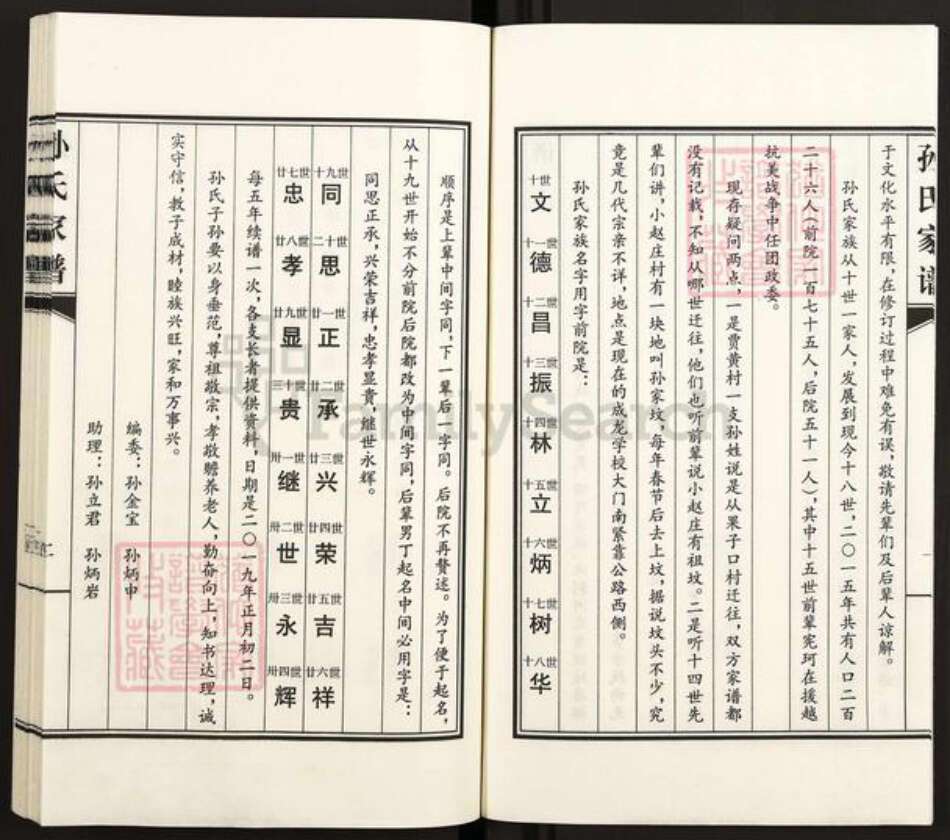 孙氏家谱
于文化水平有限，在修订过程中难免有误，敬请先辈们及后辈人谅解。
孙氏家族从十世一家人，发展到现今十八世，二〇一五年共有人口二百
二十六人（前院一百七十五人，后院五十一人），其中十五世前辈宪珂在援越
抗美战争中任团政委。
现存疑问两点，一是贾黄村一支孙姓说是从果子口村迁往，双方家谱都
没有记载，不知从哪世迁往，他们也听前辈说小赵庄有祖坟。二是听十四世先
辈们讲，小赵庄村有一块地叫孙家坟，每年春节后去上坟，据说坟头不少，究
竟是几代宗亲不详，地点是现在的成龙学校大门南紧靠公路西侧。
孙氏家族名字用字前院是：
十世 文 十一世 德 十二世 昌 十三世 振 十四世 林 十五世 立 十六世 炳 十七世 树 十八世 华
顺序是上辈中间字同，下一辈后一字同。后院不再赘述。为了便于起名，
从十九世开始不分前院后院都改为中间字同，后辈男丁起名中间必用字是：
同思正承，兴荣吉祥，忠孝显贵，继世永辉。
十九世 同 二十世 思 廿一世 正 廿二世 承 廿三世 兴 廿四世 荣 廿五世 吉 廿六世 祥
廿七世 忠 廿八世 孝 廿九世 显 三十世 贵 卅一世 继 卅二世 世 卅三世 永 卅四世 辉
每五年续谱一次，各支长者提供资料，日期是二〇一九年正月初二日。
孙氏子孙要以身垂范，尊祖敬宗，孝敬赡养老人，勤奋向上，知书达理，诚
实守信，教子成材，睦族兴旺，家和万事兴。
编委：孙金宝 孙炳申
助理：孙立君 孙炳岩
孙氏家谱
二
FamilySearch